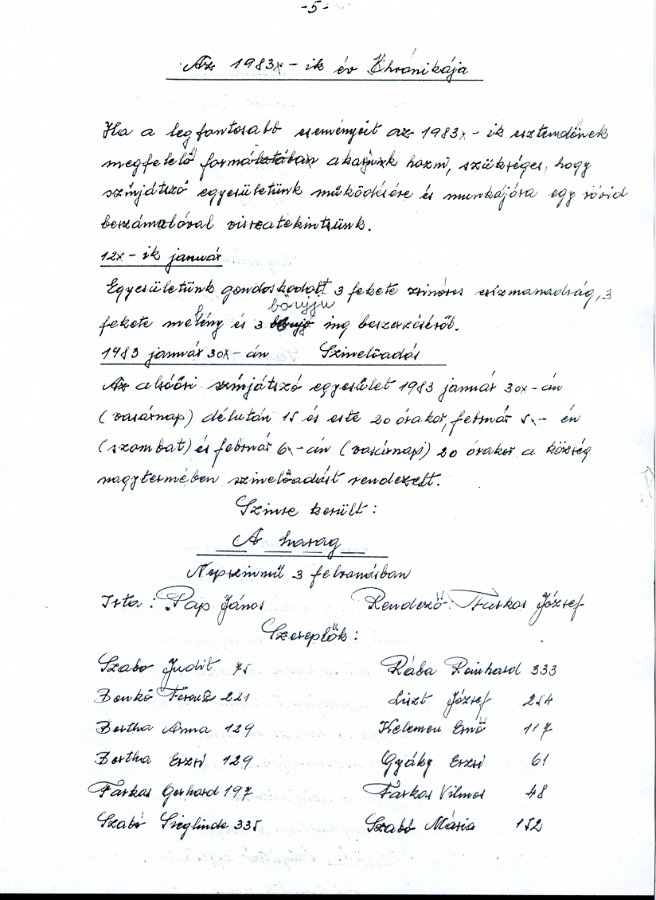 -5-
Az 1983x-ik év Khrónikája
Ha a legfontosabb eseményeit az 1983x-ik esztendőnek
megfelelő formátában akarjuk hozni, szükséges, hogy
színjátszó egyesületünk működésére és munkájára egy rövid
beszámolóval visszatekintsünk.
12x-ik január
Egyesületünk gondoskodott 3 fekete zsinóros csizmanadrág, 3
bőujju
fekete melény és 3 ing beszerzéséről.
1983 január 30x-án Szinelőadás
Az alsóőri színjátszó egyesület 1983 január 30x-án
(vasárnap) délután 15 és este 20 órakor, február 5x-én
(szombat) és február 6x-án (vasárnap) 20 órakor a község
nagytermében szinelőadást rendezett.
Szinre került:
A harag
Népszinmű 3 felvonásban
Irta: Pap János Rendező: Farkas József
Szereplők:
Szabo Judit 75 Rába Reinhard 333
Benkő Ferenc 221 Liszt József 254
Bertha Anna 129 Kelemen Ernő 117
Bertha Erzsi 129 Gyáky Erzsi 61
Farkas Gerhard 197 Farkas Vilmos 48
Szabó Sieglinde 335 Szabó Mária 152